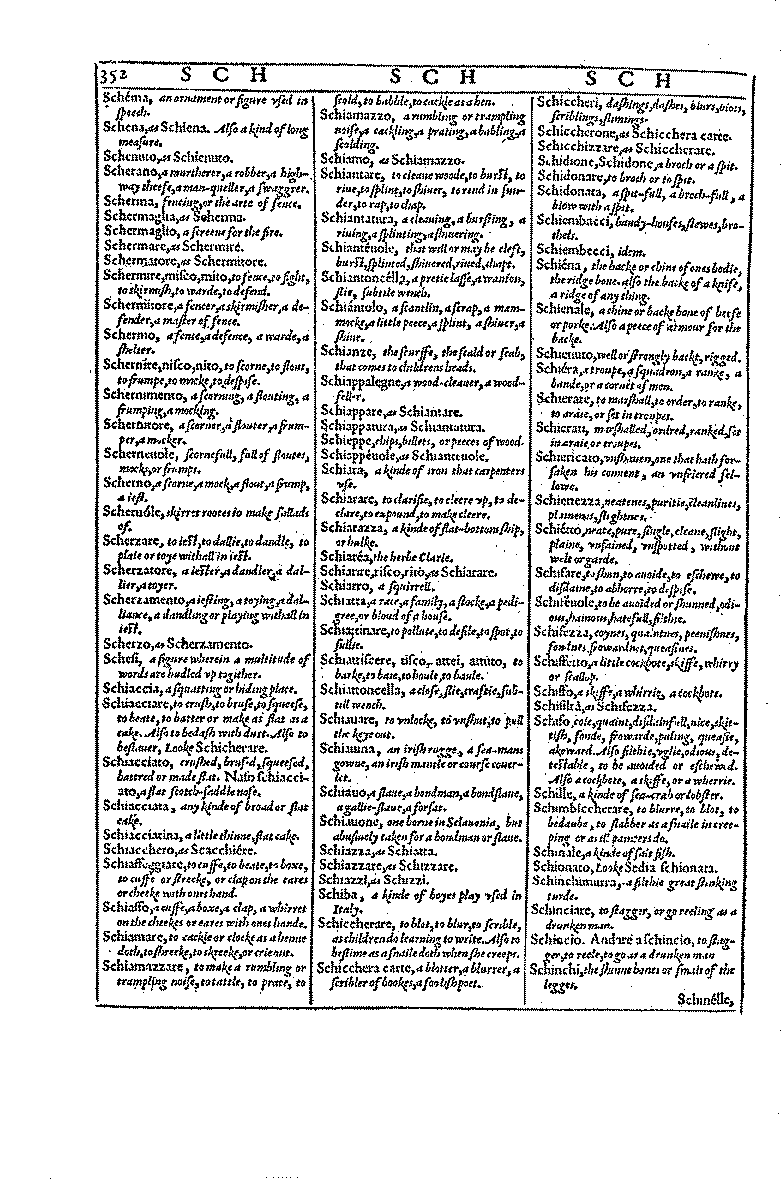 352 S C H S C H S C H
Schéma, an ornament or figure vsed in
speech.
Schena, as Schiena. Also a kind of long
measure.
Schenuto, as Schienuto.
Scherano, a murtherer, a robber, a high-
way theefe, a man-queller, a swaggrer.
Scherma, fencing, or the arte of fence.
Schermaglia, as Scherma.
Schermaglio, a screene for the fire.
Schermare, as Schermire.
Schermatore, as Schermitore.
Schermire, misco, mito, to fence, to fight,
to skirmish, to warde, to defend.
Schermitore, a fencer, a skirmisher, a de-
fender, a master of fence.
Schermo, a fence, a defence, a warde, a
shelter.
Schernire, nisco, nito, to scorne, to flout,
to frumpe, to mocke, to despise.
Schernimento, a scorning, a flouting, a
frumping, a mocking.
Schernitore, a scorner, a flouter, a frum-
per, a mocker.
Scherneuole, scornefull, full of floutes,
mocks, or frumps.
Scherno, a scorne, a mock, a flout, a frump,
a iest.
Scheruóle, skirret rootes to make sallads
of.
Scherzare, to iest, to dallie, to dandle, to
plaie or toye withall in iest.
Scherzatore, a iester, a dandler, a dal-
lier, a toyer.
Scherzamento, a iesting, a toying, a dal-
liance, a dandling or playing withall in
iest.
Scherzo, as Scherzamento.
Schesi, a figure wherein a multitude of
words are hudled vp togither.
Schiaccia, a squatting or hiding place.
Schiacciare, to crush, to bruse, to squeese,
to beate, to batter or make as flat as a
cake. Also to bedash with dust. Also to
beslauer, Looke Schicherare.
Schiacciato, crushed, brused, squeesed,
battred or made flat. Naso schiacci-
ato, a flat scotch-saddle nose.
Schiacciata, any kinde of broad or flat
cake.
Schiacciatina, a little thinne, flat cake.
Schiacchero, as Scacchiére.
Schiaffeggiare, to cuffe, to beate, to boxe,
to cuffe or streeke, or clap on the eares
or cheeke with ones hand.
Schiaffo, a cuffe, a boxe, a clap, a whirret
on the cheekes or eares with ones hande.
Schiamare, to cackle or clocke as a henne
doth, to shreeke, to skreeke, or crie out.
Schiamazzare, to make a rumbling or
trampling noise, to tattle, to prate, to
scold, to babble, to cackle as a hen.
Schiamazzo, a rumbling or trampling
noise, a cackling, a prating, a babling, a
scolding.
Schiamo, as Schiamazzo.
Schiantare, to cleaue woode, to burst, to
riue, to split, to shiuer, to rend in sun-
der, to rap, to chap.
Schiantatura, a cleauing, a bursting, a
riuing, a splinting, a shiuering.
Schianteuole, that will or may be cleft,
burst, splinted, shiuered, riued, chapt.
Schiantoncélla, a pretie lasse, a wanton,
slie, subtle wench.
Schiántolo, a scantlin, a scrap, a mam-
mocke, a little peece, a splint, a shiuer, a
shiue.
Schianze, the scurffe, the scald or scab,
that comes to childrens heads.
Schiappalegne, a wood-cleauer, a wood-
feller.
Schiappare, as Schiantare.
Schiappatura, as Schiantatura.
Schieppe, chips, billets, or peeces of wood.
Schiappéuole, as Schianteuole.
Schiara, a kinde of iron that carpenters
vse.
Schiarare, to clarifie, to cleere vp, to de-
clare, to expound, to make cleere.
Schiarazza, a kinde of flat-bottom ship,
or hulke.
Schiaréa, the herbe Clarie.
Schiarire, risco, rito, as Schiarare.
Schiarro, a squirrell.
Schiatta, a race, a family, a stocke, a pedi-
gree, or bloud of a house.
Schiattinare, to pollute, to defile, to spot, to
sullie.
Schiattiscere, tisco, attei, attito, to
barke, to baie, to houle, to baule.
Schiattoncella, a close, slie, craftie, sub-
till wench.
Schiauare, to vnlocke, to vnshut, to pull
the key out.
Schiauina, an irish rugge, a sea-mans
gowne, an irish mantle or course couer-
let.
Schiauo, a slaue, a bondman, a bondslaue,
a gallie-slaue, a forsat.
Schiauone, one borne in Sclauonia, but
abusiuely taken for a bondman or slaue.
Schiazza, as Schiatta.
Schiazzare, as Schizzare.
Schiazzi, as Schizzi.
Schiba, a kinde of boyes play vsed in
Italy.
Schiccherare, to blot, to blur, to scrible,
as children do learning to write. Also to
beslime as a snaile doth when she creeps.
Schicchera carte, a blotter, a blurrer, a
scribler of bookes, a foolish poet.
Schiccheri, dashings, slashes, blurs, blots,
scriblings, slimings.
Schiccherone, as Schicchera carte.
Schicchizzare, as Schiccherare.
Schidione, Schidone, a broch or a spit.
Schidonare, to broch or to spit.
Schidonata, a spit-full, a broch-full, a
blow with a spit.
Schiembacci, baudy-houses, stewes, bro-
thels.
Schiembecci, idem.
Schiéna, the backe or chine of ones bodie,
the ridge bone. also the backe of a knife,
a ridge of any thing.
Schienale, a chine or backe bone of beefe
or porke. Also a peece of armour for the
backe.
Schienuto, well or strongly backt, rigged.
Schiéra, a troupe, a squadron, a ranke, a
bande, or a cornet of men.
Schierare, to marshall, to order, to ranke,
to araie, or set in troupes.
Schierati, marshalled, ordred, ranked, set
in araie or troupes.
Schiericato, vnshauen, one that hath for-
saken his conuent, an vnfriered fel-
lowe.
Schiettezza, neatenes, puritie, cleanlines,
plainenes, slightnes.
Schiétto, neate, pure, single, cleane, slight,
plaine, vnfained, vnspotted, without
welt or garde.
Schifare, to shun, to auoide, to eschewe, to
disdaine, to abhorre, to despise.
Schiféuole, to be auoided or shunned, odi-
ous, hainous, hatefull, filthie.
Schifezza, coynes, quaintnes, peeuishnes,
fondnes, frowardnes, queasines.
Schiffetto, a little cockbote, skiffe, whirry
or scallop.
Schiffo, a skiffe, a whirrie, a cockbote.
Schifiltà, as Schifezza.
Schifo, coie, quaint, disdainfull, nice, skit-
tish, fonde, frowarde, puling, queasie,
akeward. Also filthie, vglie, odious, de-
testable, to be auoided or eschewed.
Also a cockbote, a skiffe, or a wherrie.
Schille, a kinde of sea-crab or lobster.
Schimbiccherare, to blurre, to blot, to
bedaube, to slabber as a snaile in cree-
ping or as ill paniers do.
Schinale, a kinde of salt fish.
Schionato, Looke Sedia schionata.
Schinchimurra, a filthie great stinking
turde.
Schinciare, to stagger, or go reeling as a
drunken man.
Schincio. Andare a schincio, to stag-
ger, to reele, to go as a drunken man
Schinchi, the shinne bones or smals of the
legges.
Schinélle,